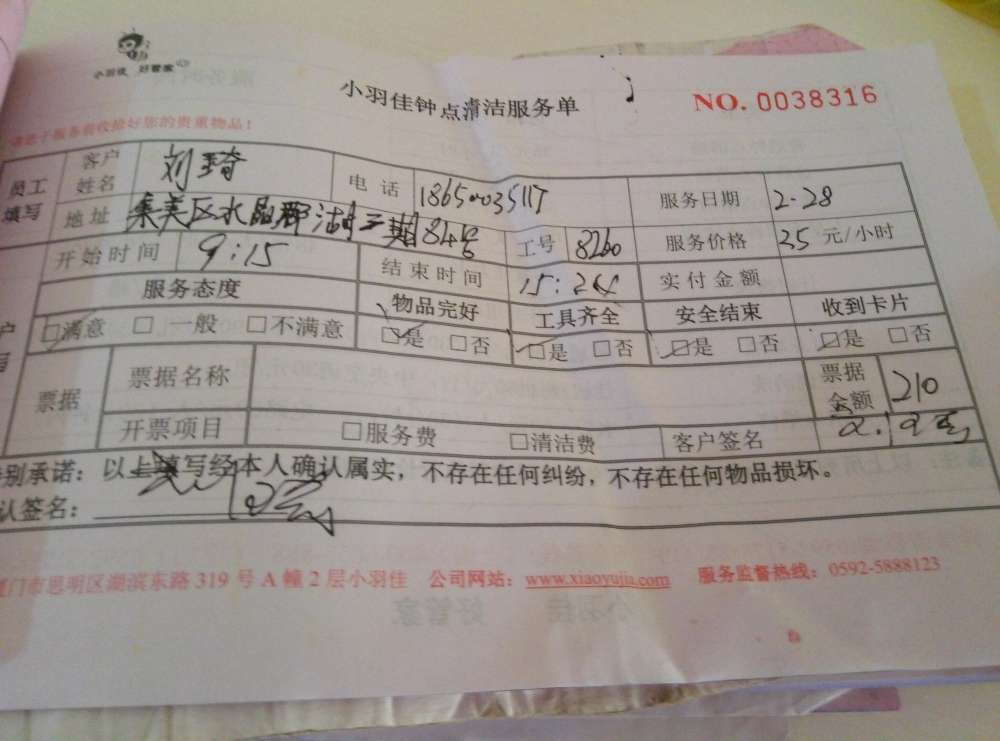 小羽佳 好管家
小羽佳钟点清洁服务单
NO. 0038316
服务前收拾好您的贵重物品！
员工填写
客户姓名 刘琦 电话 服务日期 2-28
地址 集美区水晶郡 工号 8260 服务价格 35 元/小时
开始时间 9:15 结束时间 实付金额
服务态度 物品完好 工具齐全 安全结束 收到卡片
□满意 □一般 □不满意 □是 □否 □是 □否 □是 □否 □是 □否
票据 票据名称 票据金额 210
开票项目 □服务费 □清洁费 客户签名
别承诺：以上填写经本人确认属实，不存在任何纠纷，不存在任何物品损坏。
认签名：
门市思明区湖滨东路 319 号 A 幢 2 层小羽佳 公司网站：www.xiaoyujia.com 服务监督热线：0592-5888123